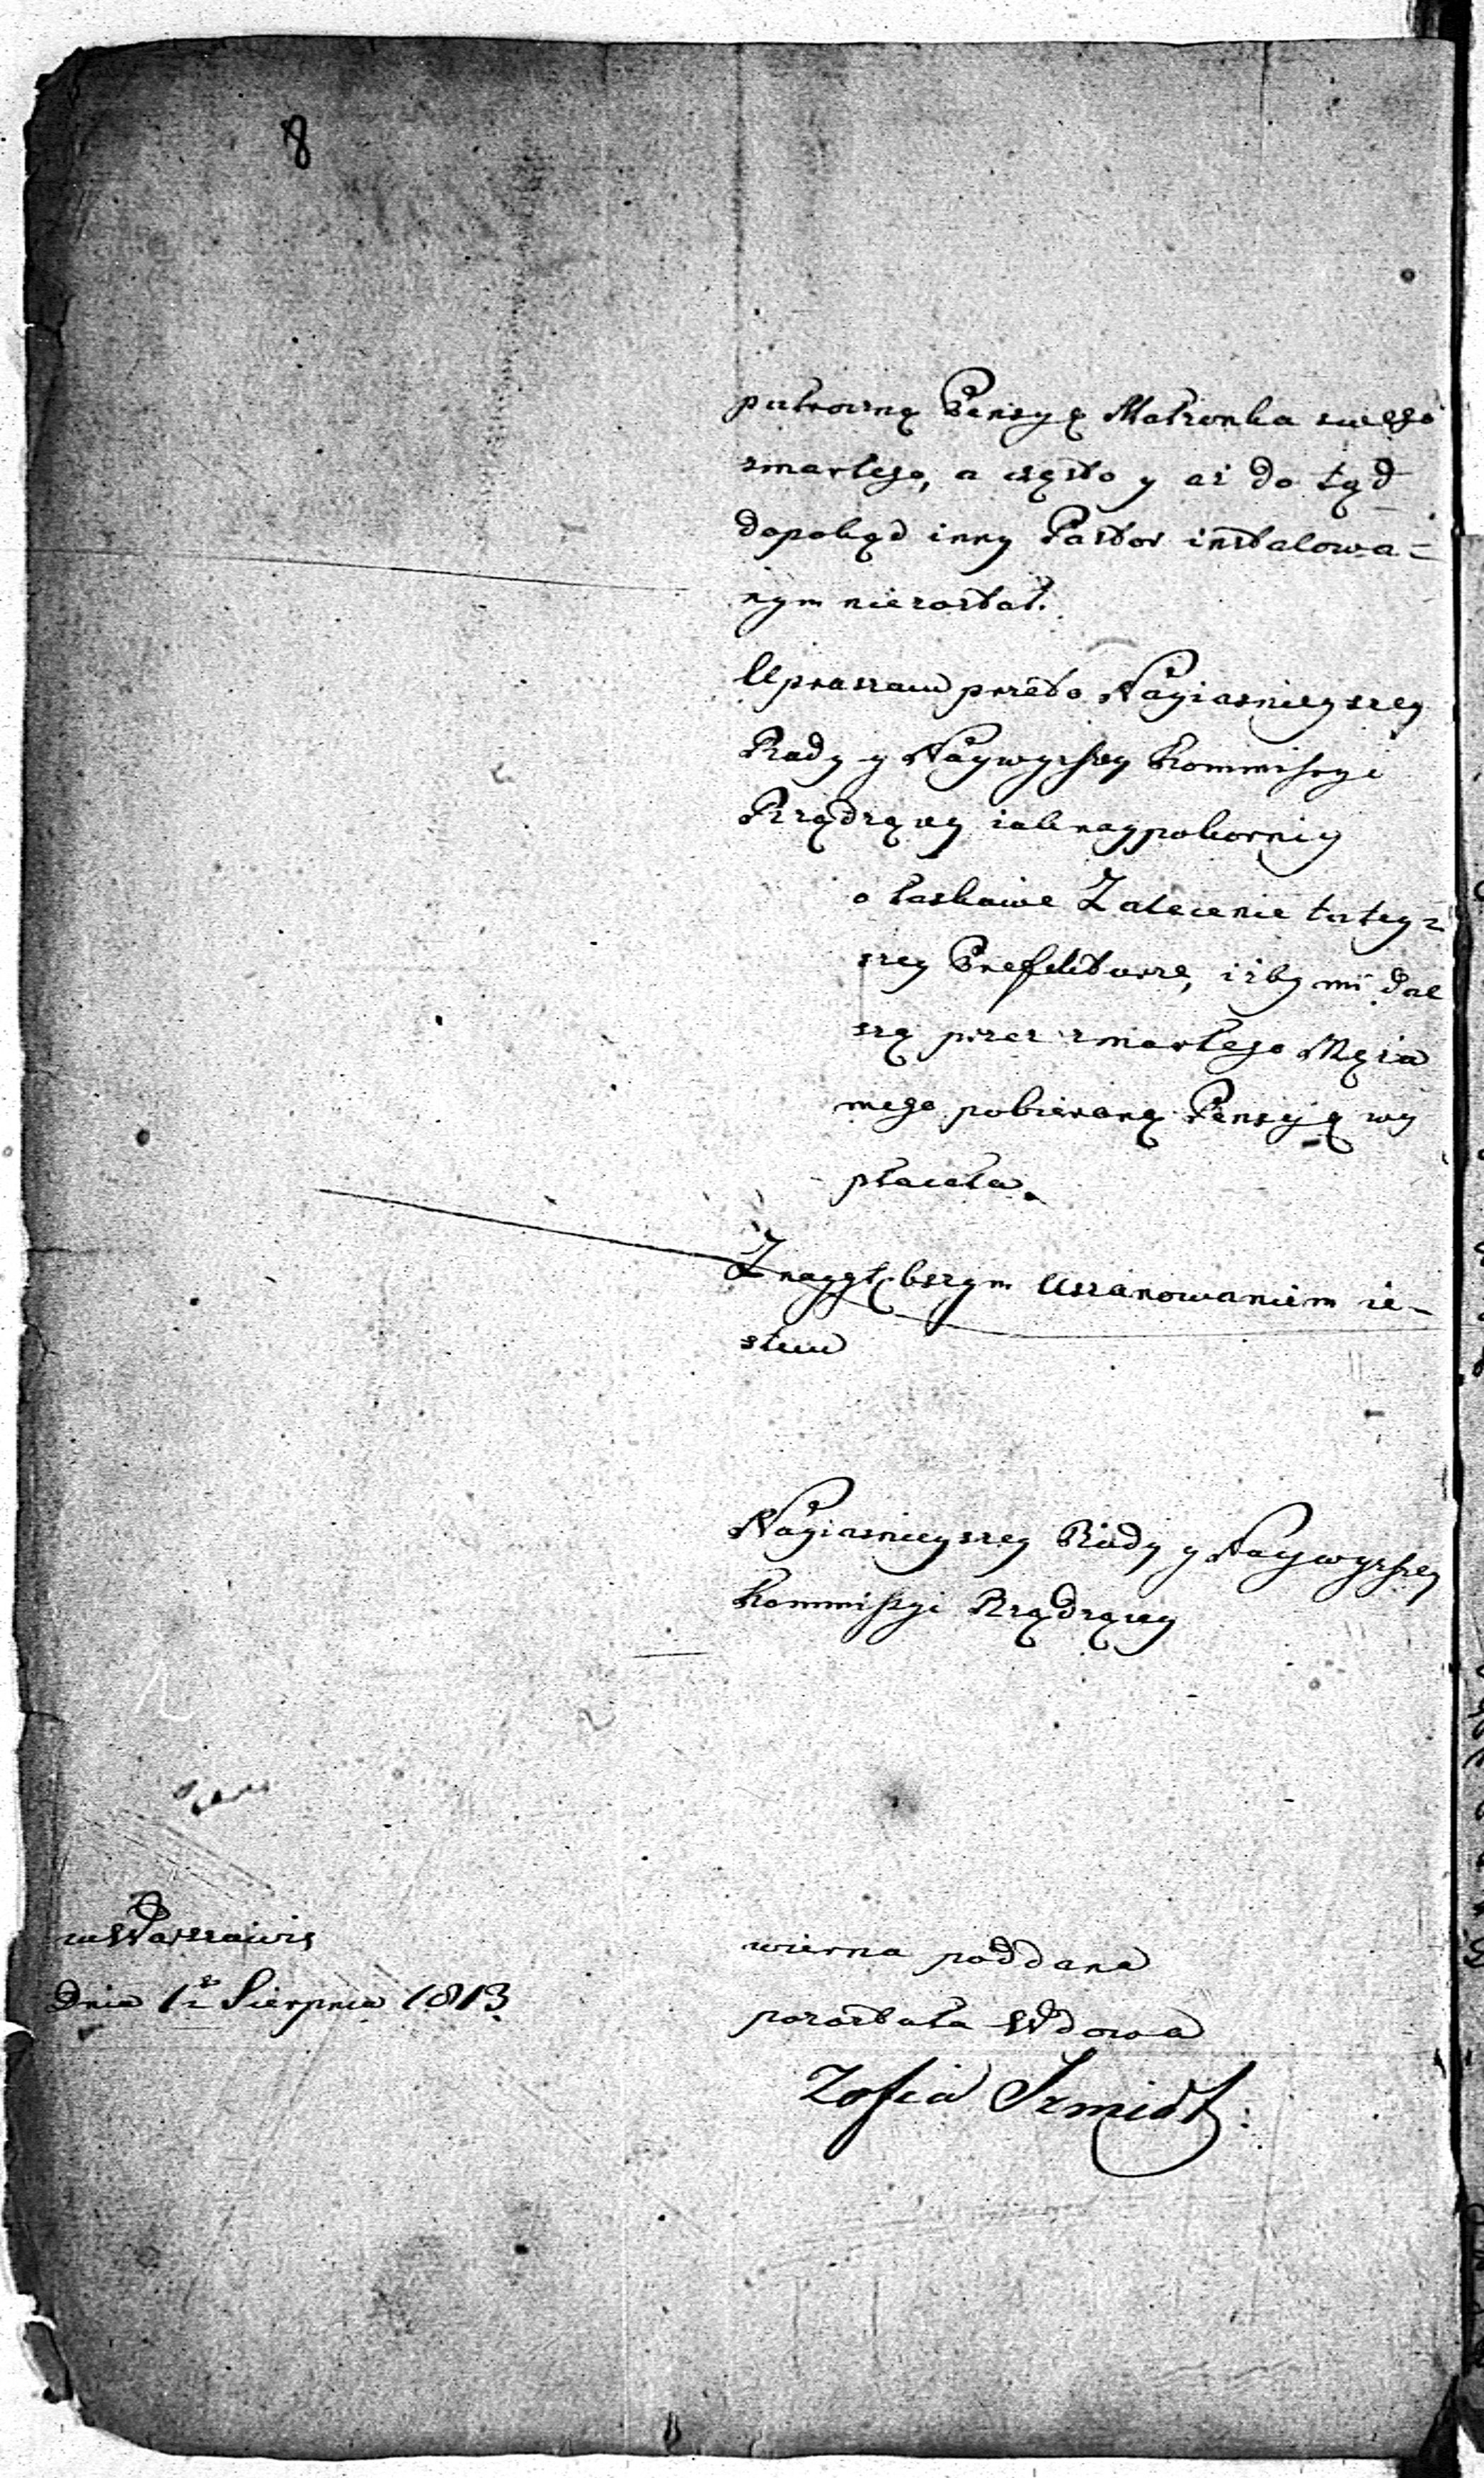 8
putrowną Pensyę Matronka swego
zmarłego, a często y aż do tąd
dopokąd inny Pastor instalowa=
nym niezostał.
Upraszam przeto Nayiasnieyszey
Rady y Naywyższey Kommissyi
Rządzącey iaknaypokorniey
o łaskawe Zalecenie tutey=
szey Prefekturze, iżby mi dal
szą przez zmarłego Męża
mego pobieraną Pensyię wy
płacała.
Z naygłębszym Uszanowaniem ie-
stem
Nayiasnieyszey Rady y Naywyższey
Kommissyi Rządzącey
w Warszawie
Dnia 12 Sierpnia 1813.
wierna poddana
pozostała Wdowa
Zofia Szmidt